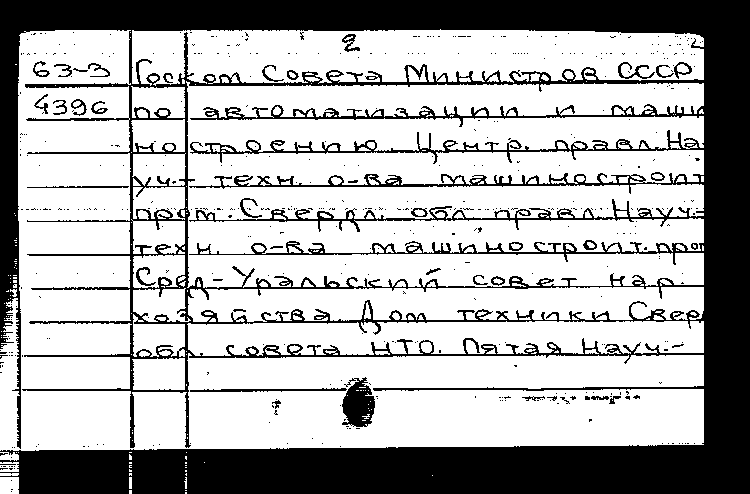 2
63-3 Госком Совета Министров СССР
4396 по автоматизации и маши
ностроению. Центр. правл. На
уч.- техн. о-ва машиностроит
пром. Свердл. обл. правл. Науч.-
техн. о-ва машиностроит. пром
Сред-Уральский совет нар.
хозяйства. Дом техники Сверд
обл. совета НТО. Пятая Науч.-